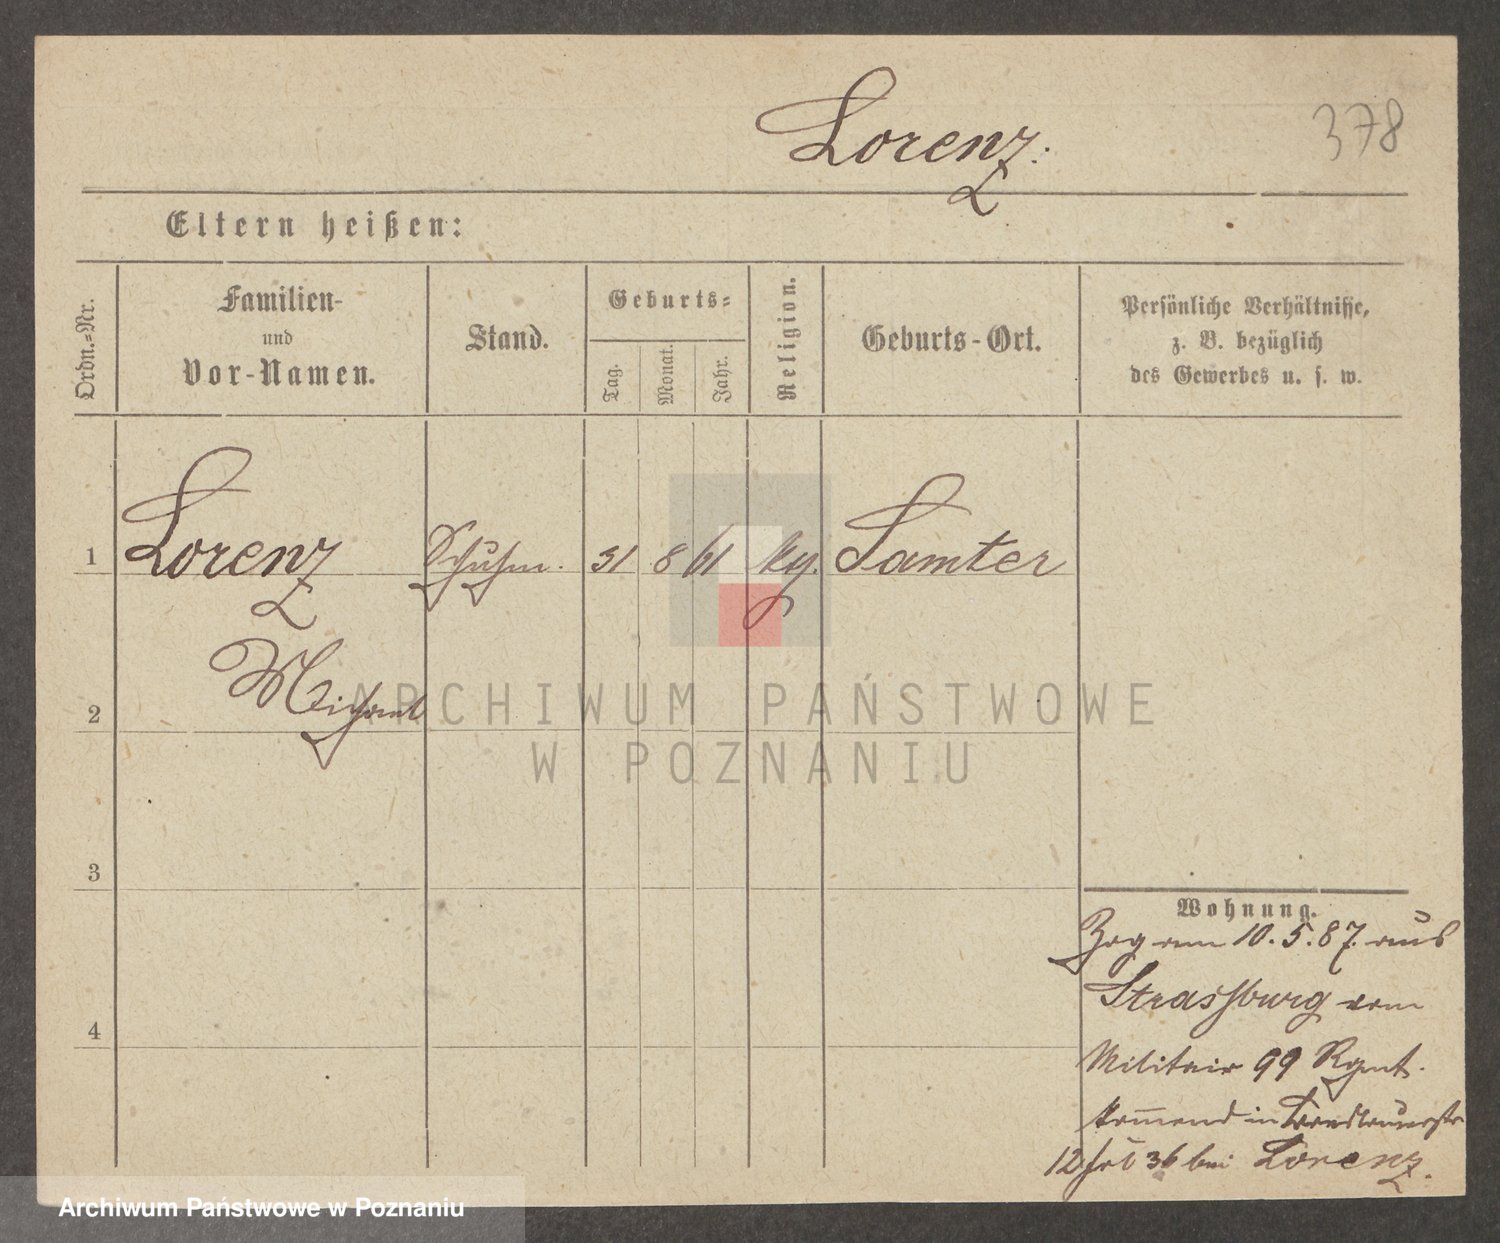 Lorenz.
378
Eltern heißen:
Ordn.-Nr.
Familien-
und
Vor-Namen.
Stand.
Geburts-
Tag.
Monat.
Jahr.
Religion.
Geburts-Ort.
Persönliche Verhältnisse,
z. B. bezüglich
des Gewerbes u. s. w.
1 Lorenz Schuhm. 31 8 61 Samter
2 Michael
3
4
Wohnung.
Zog am 10. 5. 87. aus
Strassburg vom
Militair 99 Rgmt.
kommend in
12 36 bei Lorenz.
ARCHIWUM PAŃSTWOWE
W POZNANIU
Archiwum Państwowe w Poznaniu